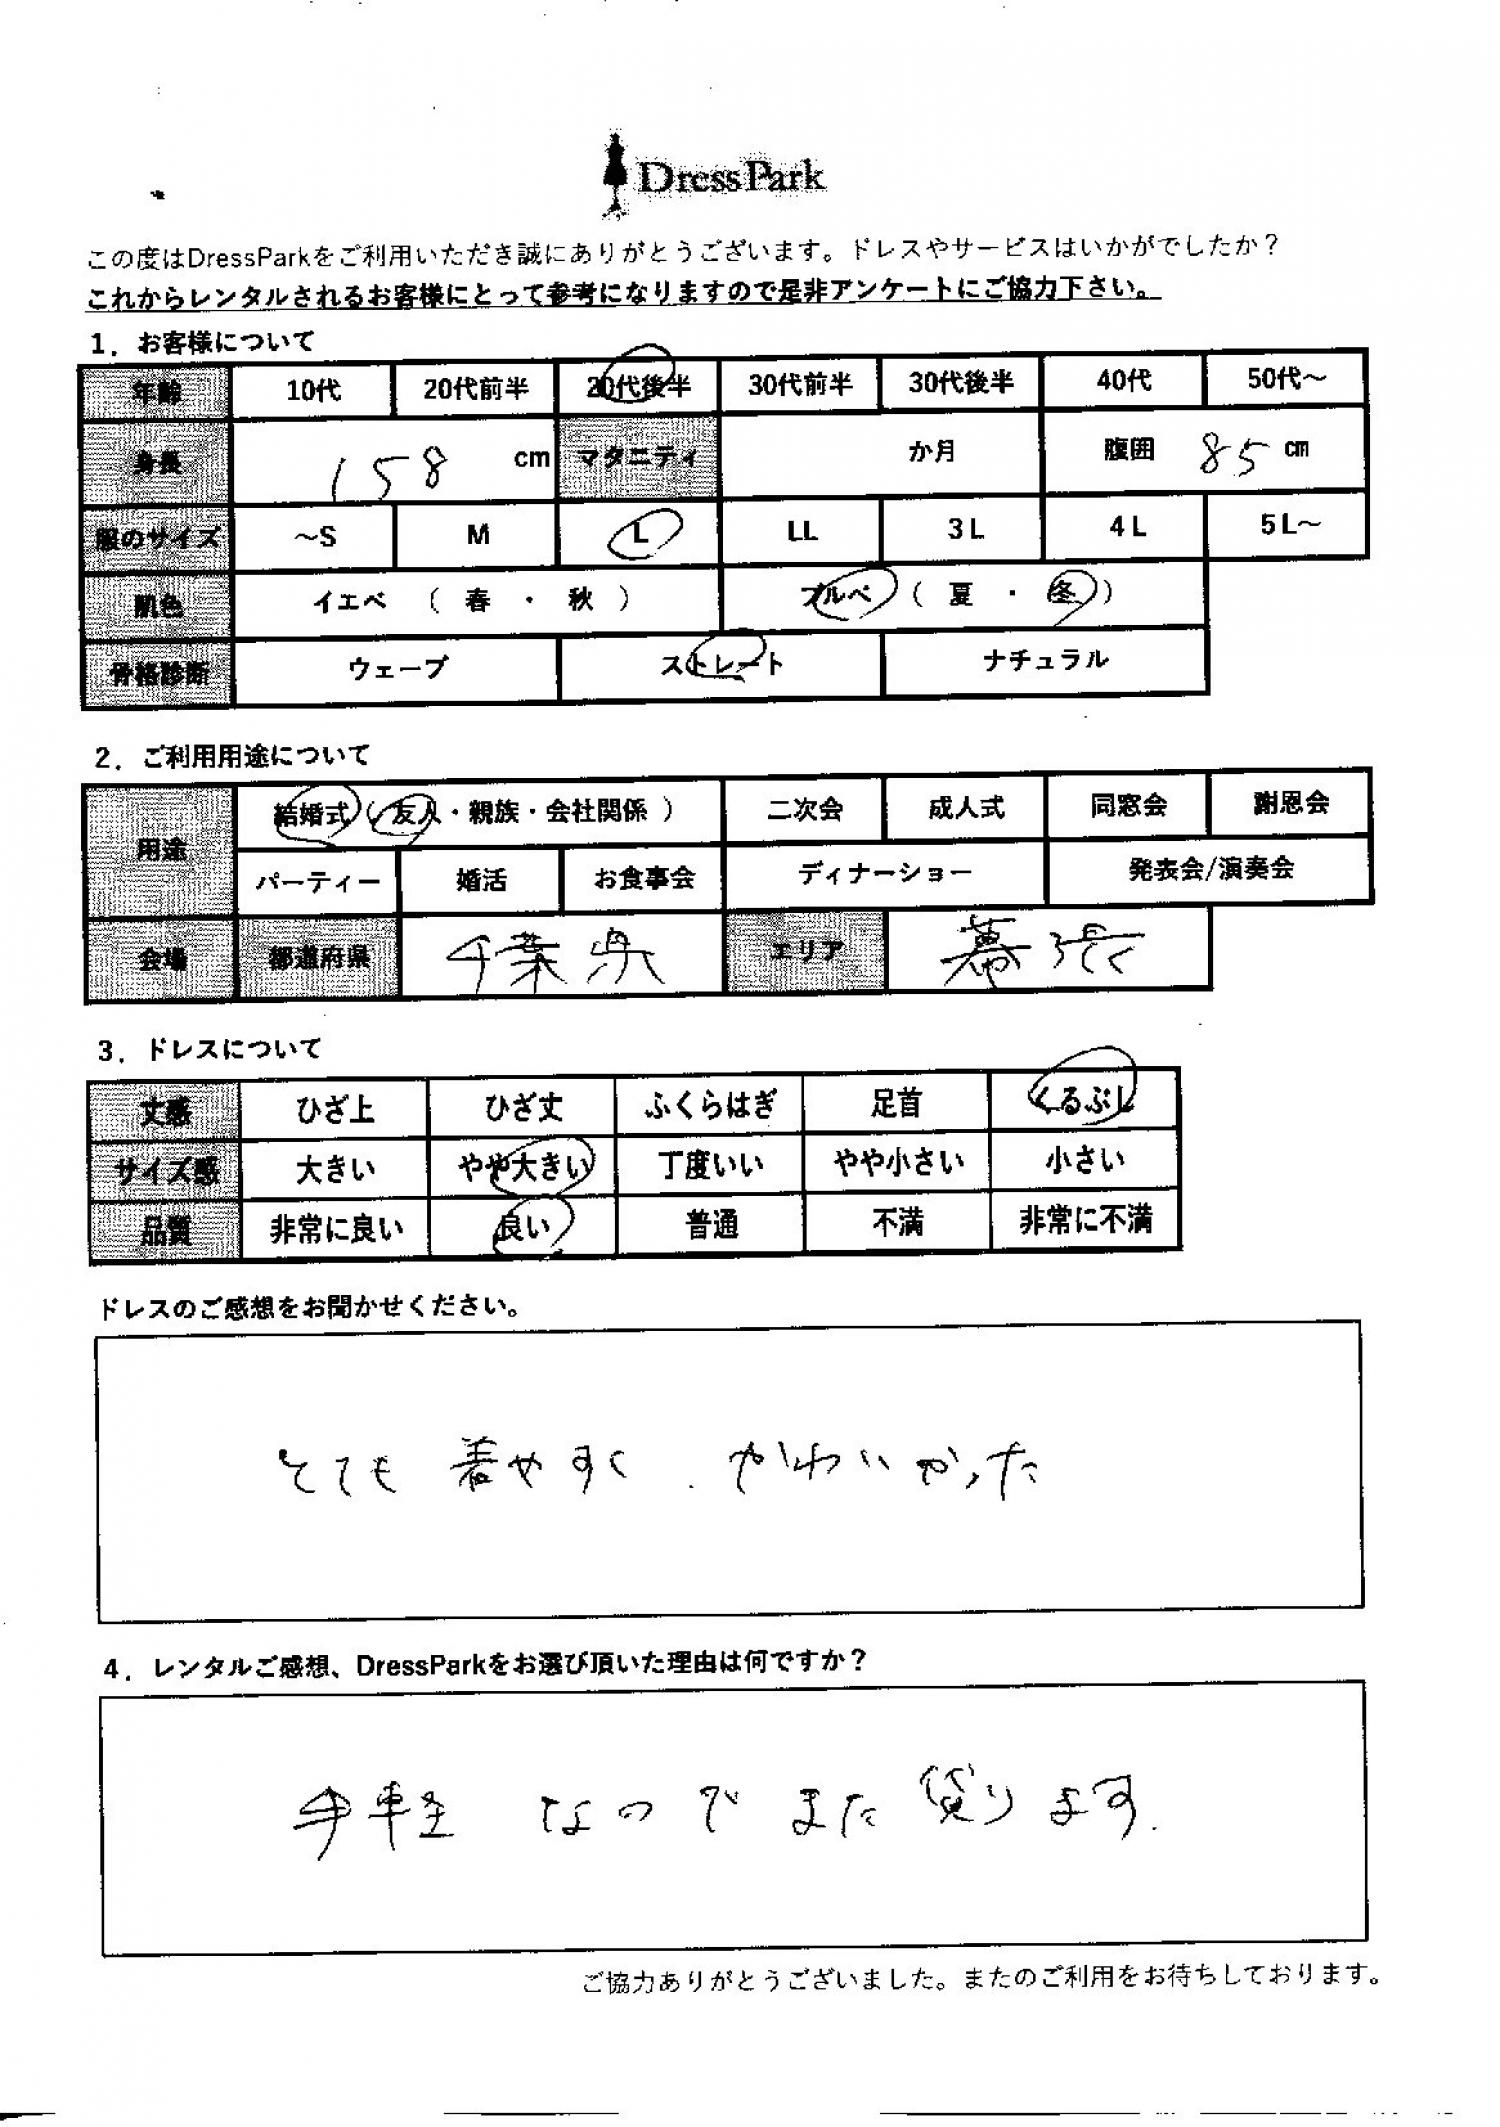 DressPark
この度はDressParkをご利用いただき誠にありがとうございます。ドレスやサービスはいかがでしたか？
これからレンタルされるお客様にとって参考になりますので是非アンケートにご協力下さい。
1．お客様について
年齢 10代 20代前半 20代後半 30代前半 30代後半 40代 50代～
身長 158 cm マタニティ か月 腹囲 85 cm
服のサイズ ～S M L LL 3L 4L 5L～
肌色 イエベ （ 春 ・ 秋 ） ブルベ （ 夏 ・ 冬 ）
骨格診断 ウェーブ ストレート ナチュラル
2．ご利用用途について
用途 結婚式（ 友人・親族・会社関係 ） 二次会 成人式 同窓会 謝恩会
パーティー 婚活 お食事会 ディナーショー 発表会/演奏会
会場 都道府県 千葉県 エリア 幕張
3．ドレスについて
丈感 ひざ上 ひざ丈 ふくらはぎ 足首 くるぶし
サイズ感 大きい やや大きい 丁度いい やや小さい 小さい
品質 非常に良い 良い 普通 不満 非常に不満
ドレスのご感想をお聞かせください。
とても着やすく、かわいかった
4．レンタルご感想、DressParkをお選び頂いた理由は何ですか？
手軽なのでまた貸ります.
ご協力ありがとうございました。またのご利用をお待ちしております。